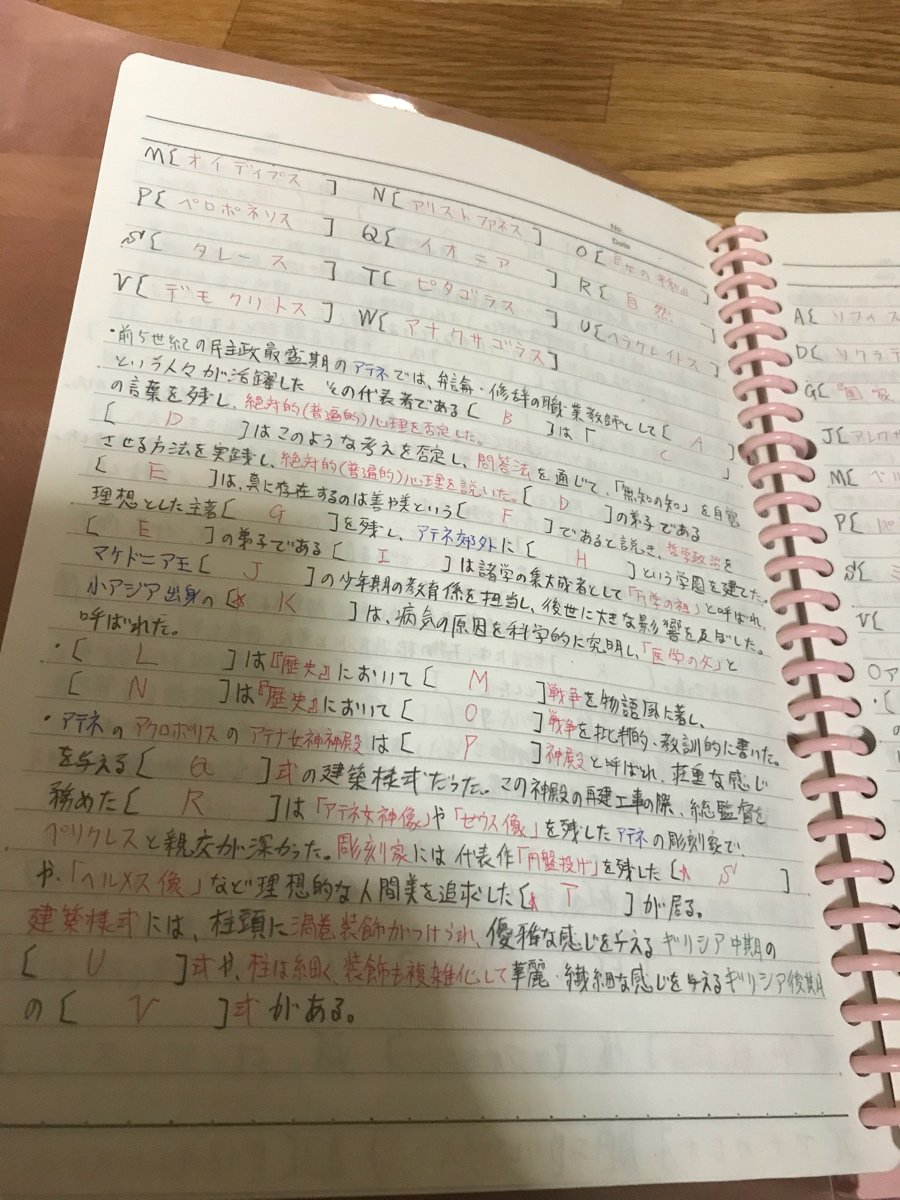 No.
Date
M[ オイディプス ] N[ アリストファネス ] O[ 『女の平和』 ]
P[ ペロポネソス ] Q[ イオニア ] R[ 自然 ]
S[ タレース ] T[ ピタゴラス ] U[ ヘラクレイトス ]
V[ デモクリトス ] W[ アナクサゴラス ]
・前5世紀の民主政最盛期のアテネでは、弁論・修辞の職業教師として[ A ]
という人々が活躍した その代表者である[ B ]は「 C 」
の言葉を残し、絶対的(普遍的)心理を否定した。
[ D ]はこのような考えを否定し、問答法を通じて、「無知の知」を自覚
させる方法を実践し、絶対的(普遍的)心理を説いた。[ D ]の弟子である
[ E ]は、真に存在するのは善や美という[ F ]であると説き、哲学政治を
理想とした主著[ G ]を残し、アテネ郊外に[ H ]という学園を建てた。
[ E ]の弟子である[ I ]は諸学の集大成者として「万学の祖」と呼ばれ、
マケドニア王[ J ]の少年期の教育係を担当し、後世に大きな影響を及ぼした。
小アジア出身の[* K ]は、病気の原因を科学的に究明し、「医学の父」と
呼ばれた。
・[ L ]は『歴史』において[ M ]戦争を物語風に著し、
[ N ]は『歴史』において[ O ]戦争を批判的・教訓的に書いた。
・アテネのアクロポリスのアテナ女神神殿は[ P ]神殿と呼ばれ、荘重な感じ
を与える[ Q ]式の建築様式だった。この神殿の再建工事の際、総監督を
務めた[ R ]は「アテネ女神像」や「ゼウス像」を残したアテネの彫刻家で、
ペリクレスと親交が深かった。彫刻家には代表作「円盤投げ」を残した[* S ]
や、「ヘルメス像」など理想的な人間美を追求した[* T ]が居る。
建築様式には、柱頭に渦巻装飾がつけられ、優雅な感じを与えるギリシア中期の
[ U ]式や、柱は細く、装飾も複雑化して華麗・繊細な感じを与えるギリシア後期
の[ V ]式がある。
A[ ソフィス
D[ ソクラテ
G[ 『国家
J[ アレクサ
M[ ペル
P[ パ
S[ ミ
V[